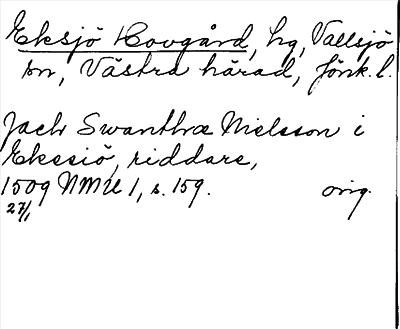 Eksjö Hovgård, hg, Vallsjö
sn, Västra härad, Jönk. l.
Jach Swanthæ Nielsson i
Ekesiö, riddare,
1509 NMU 1, s. 159. orig.
27/1